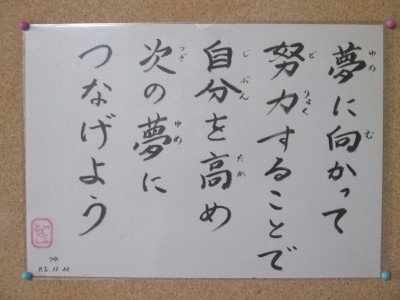 夢に向かって
努力することで
自分を高め
次の夢に
つなげよう